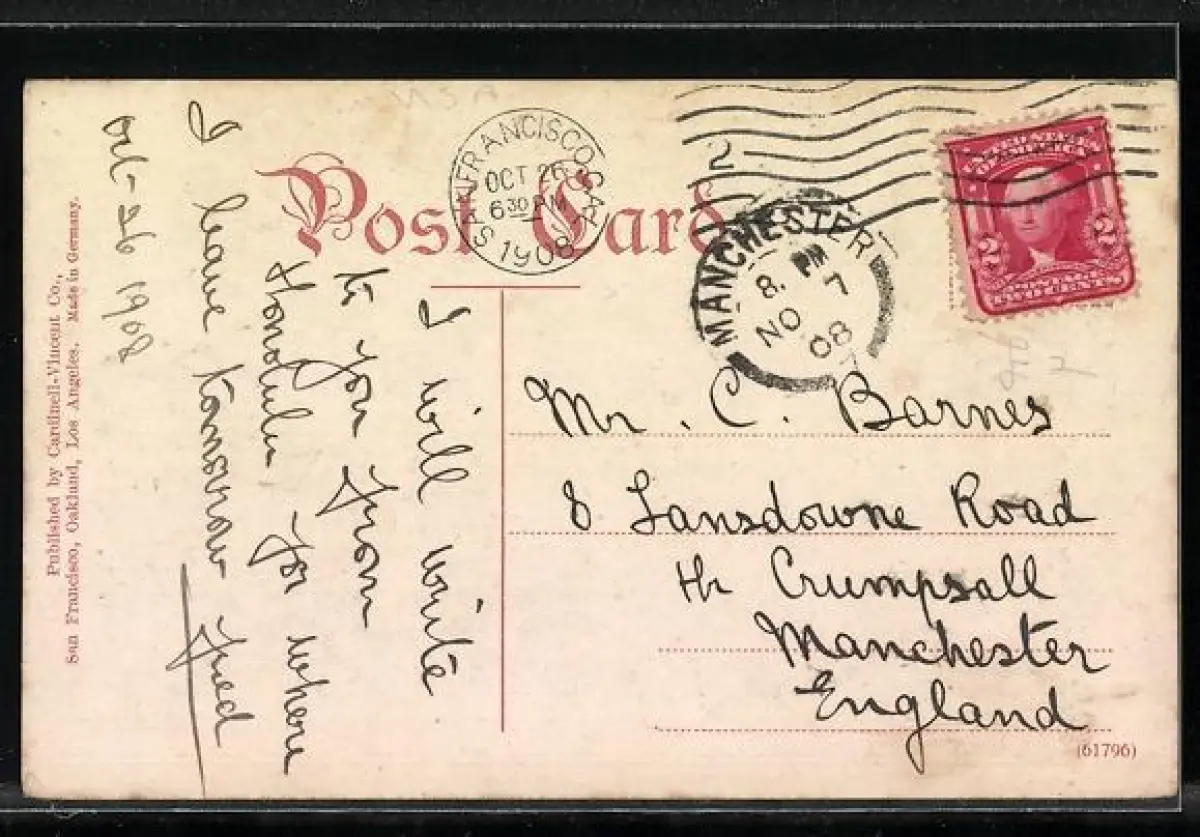 USA
Post Card
SAN FRANCISCO, CAL.
OCT 26
6 30 PM
1908
2
MANCHESTER
8. PM
7 NO
08
UNITED STATES
OF AMERICA
2 2
POSTAGE
TWO CENTS
I will write
to you from
Honolulu for where
I leave tomorrow Fred
Oct-26 1908
Published by Cardinell-Vincent Co.,
San Francisco, Oakland, Los Angeles. Made in Germany.
Mr. C. Barnes
8 Lansdowne Road
Hr Crumpsall
Manchester
England
(61796)